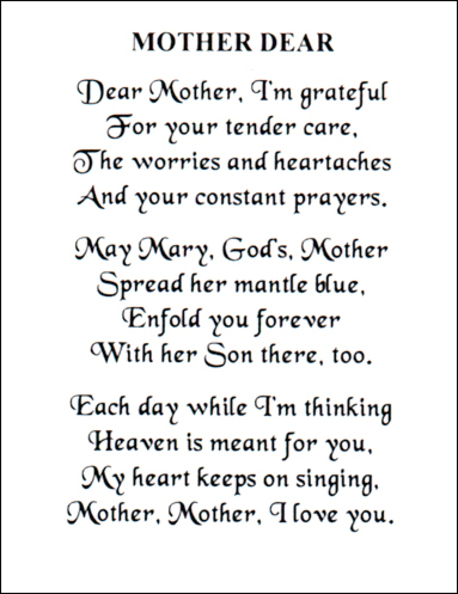 MOTHER DEAR
Dear Mother, I'm grateful
For your tender care,
The worries and heartaches
And your constant prayers.
May Mary, God's, Mother
Spread her mantle blue,
Enfold you forever
With her Son there, too.
Each day while I'm thinking
Heaven is meant for you,
My heart keeps on singing,
Mother, Mother, I love you.